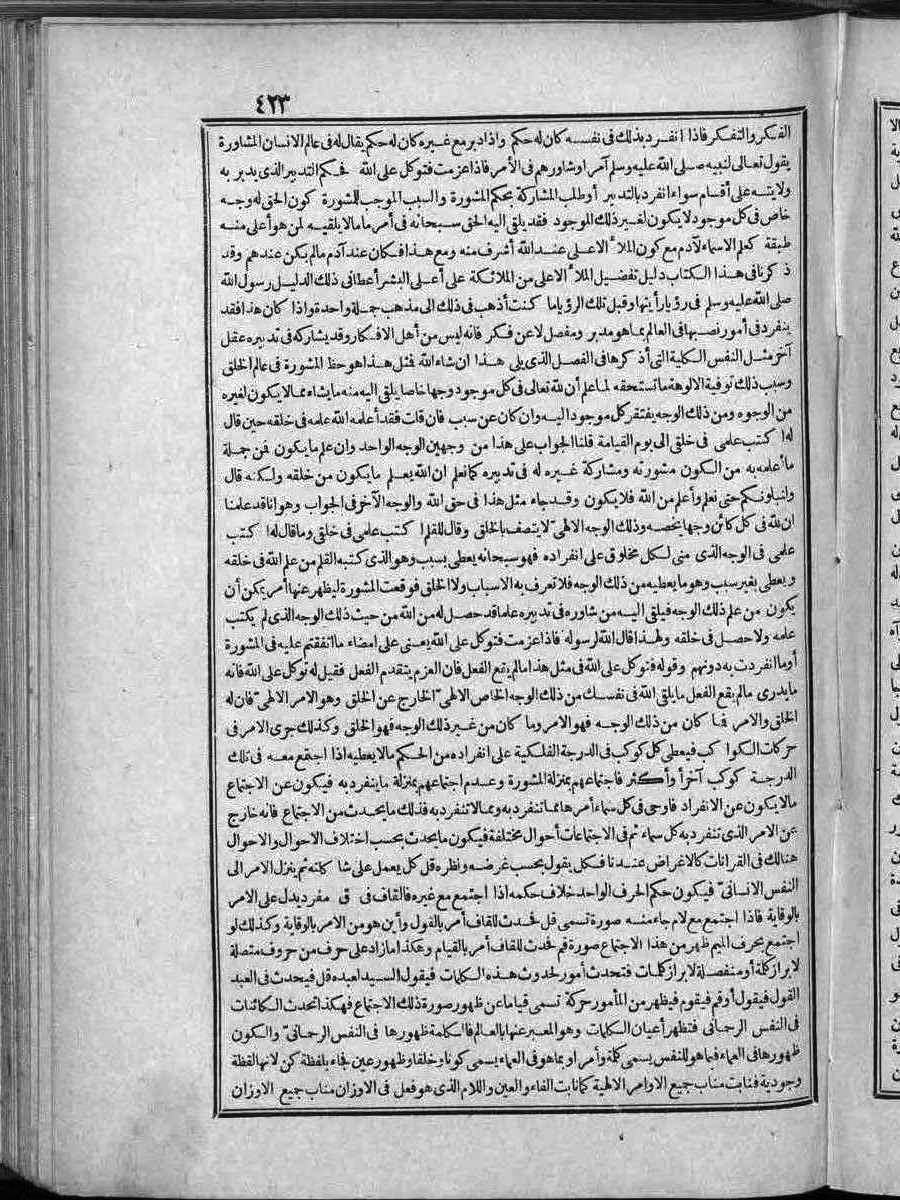 ٤٢٣
الفكر والتفكر فاذا انفرد بذلك فى نفسه كان له حكم واذا دبر مع غيره كان له حكم يقال له فى عالم الانسان المشاورة
يقول تعالى لنبيه صلى الله عليه وسلم آمرا وشاورهم فى الأمر فاذا عزمت فتوكل على الله فحكم التدبير الذى يدبر به
ولايته على أقسام سواء انفرد بالتدبير أو طلب المشاركة بحكم المشورة والسبب الموجب للمشورة كون الحق له وجه
خاص فى كل موجود لا يكون لغير ذلك الموجود فقد يلقى اليه الحق سبحانه فى أمر ما ما لا يلقيه لمن هو أعلى منه
طبقة كعلم الاسماء لآدم مع كون الملأ الاعلى عند الله أشرف منه ومع هذا فكان عند آدم ما لم يكن عندهم وقد
ذكرنا فى هذا الكتاب دليل تفضيل الملأ الاعلى من الملائكة على أعلى البشر أعطانى ذلك الدليل رسول الله
صلى الله عليه وسلم فى رؤيا رأيتها وقبل تلك الرؤيا ما كنت أذهب فى ذلك الى مذهب جملة واحدة واذا كان هذا فقد
ينفرد فى أمور نصبها فى العالم بما هو مدبر ومفصل لا عن فكر فانه ليس من أهل الافكار وقد يشاركه فى تدبيره عقل
آخر مثل النفس الكلية التى أذكرها فى الفصل الذى يلى هذا ان شاء الله فمثل هذا هو حظ المشورة فى عالم الخلق
وسبب ذلك توفية الالوهة ما تستحقه لما علم أن لله تعالى فى كل موجود وجها خاصا يلقى اليه منه ما يشاء مما لا يكون لغيره
من الوجوه ومن ذلك الوجه يفتقر كل موجود اليه وان كان عن سبب فان قلت فقد أعلمه الله علمه فى خلقه حين قال
له اكتب علمى فى خلقى الى يوم القيامة قلنا الجواب على هذا من وجهين الوجه الواحد وان علم ما يكون فمن جملة
ما أعلمه به من الكون مشورته ومشاركة غيره له فى تدبيره كما نعلم ان الله يعلم ما يكون من خلقه ولكنه قال
ولنبلونكم حتى نعلم وأعلم من الله فلا يكون وقد جاء مثل هذا فى حق الله والوجه الآخر فى الجواب وهو انا قد علمنا
ان لله فى كل كائن وجها يخصه وذلك الوجه الالهىّ لا يتصف بالخلق وقال للقلم اكتب علمى فى خلقى وما قال له اكتب
علمى فى الوجه الذى منى لكل مخلوق على انفراده فهو سبحانه يعطى بسبب وهو الذى كتبه القلم من علم الله فى خلقه
ويعطى بغير سبب وهو ما يعطيه من ذلك الوجه فلا تعرف به الاسباب ولا الخلق فوقعت المشورة ليظهر عنها أمر يمكن أن
يكون من علم ذلك الوجه فيلقى اليه من شاوره فى تدبيره علما قد حصل له من الله من حيث ذلك الوجه الذى لم يكتب
علمه ولا حصل فى خلقه ولهذا قال الله لرسوله فاذا عزمت فتوكل على الله يعنى على امضاء ما اتفقتم عليه فى المشورة
أو ما انفردت به دونهم وقوله فتوكل على الله فى مثل هذا ما لم يقع الفعل فان العزم يتقدم الفعل فقيل له توكل على الله فانه
ما يدرى ما لم يقع الفعل ما يلقى الله فى نفسك من ذلك الوجه الخاص الالهىّ الخارج عن الخلق وهو الامر الالهىّ فان له
الخلق والامر فما كان من ذلك الوجه فهو الامر وما كان من غير ذلك الوجه فهو الخلق وكذلك جرى الامر فى
حركات الكواكب فيعطى كل كوكب فى الدرجة الفلكية على انفراده من الحكم ما لا يعطيه اذا اجتمع معه فى تلك
الدرجة كوكب آخر أو أكثر فاجتماعهم بمنزلة المشورة وعدم اجتماعهم بمنزلة ما ينفرد به فيكون عن الاجتماع
ما لا يكون عن الانفراد فاوحى فى كل سماء أمرها مما تنفرد به ومما لا تنفرد به فذلك ما يحدث من الاجتماع فانه خارج
عن الامر الذى تنفرد به كل سماء ثم فى الاجتماعات أحوال مختلفة فيكون ما يحدث بحسب اختلاف الاحوال والاحوال
هنالك فى القرانات كالاغراض عندنا فكل يقول بحسب غرضه ونظره قل كل يعمل على شاكلته ثم يتنزل الامر الى
النفس الانسانىّ فيكون حكم الحرف الواحد خلاف حكمه اذا اجتمع مع غيره فالقاف فى ق مفرد يدل على الامر
بالوقاية فاذا اجتمع مع لام جاء منه صورة تسمى قل فحدث للقاف أمر بالقول وأين هو من الامر بالوقاية وكذلك لو
اجتمع بحرف الميم ظهر من هذا الاجتماع صورة قم فحدث للقاف أمر بالقيام وهكذا ما زاد على حرف من حروف متصلة
لابراز كلمة أو منفصلة لابراز كلمات فتحدث أمور لحدوث هذه الكلمات فيقول السيد لعبده قل فيحدث فى العبد
القول فيقول أو قم فيقوم فيظهر من المأمور حركة تسمى قياما عن ظهور صورة ذلك الاجتماع فهكذا تحدث الكائنات
فى النفس الرحمانى فتظهر أعيان الكلمات وهو المعبر عنها بالعالم فالكلمة ظهورها فى النفس الرحمانىّ والكون
ظهورها فى العماء فما هو للنفس يسمى كلمة وأمرا وبما هو فى العماء يسمى كونا وخلقا وظهور عين فجاء بلفظة كن لانها لفظة
وجودية فنابت مناب جميع الاوامر الالهية كما نابت الفاء والعين واللام الذى هو فعل فى الاوزان مناب جميع الاوزان